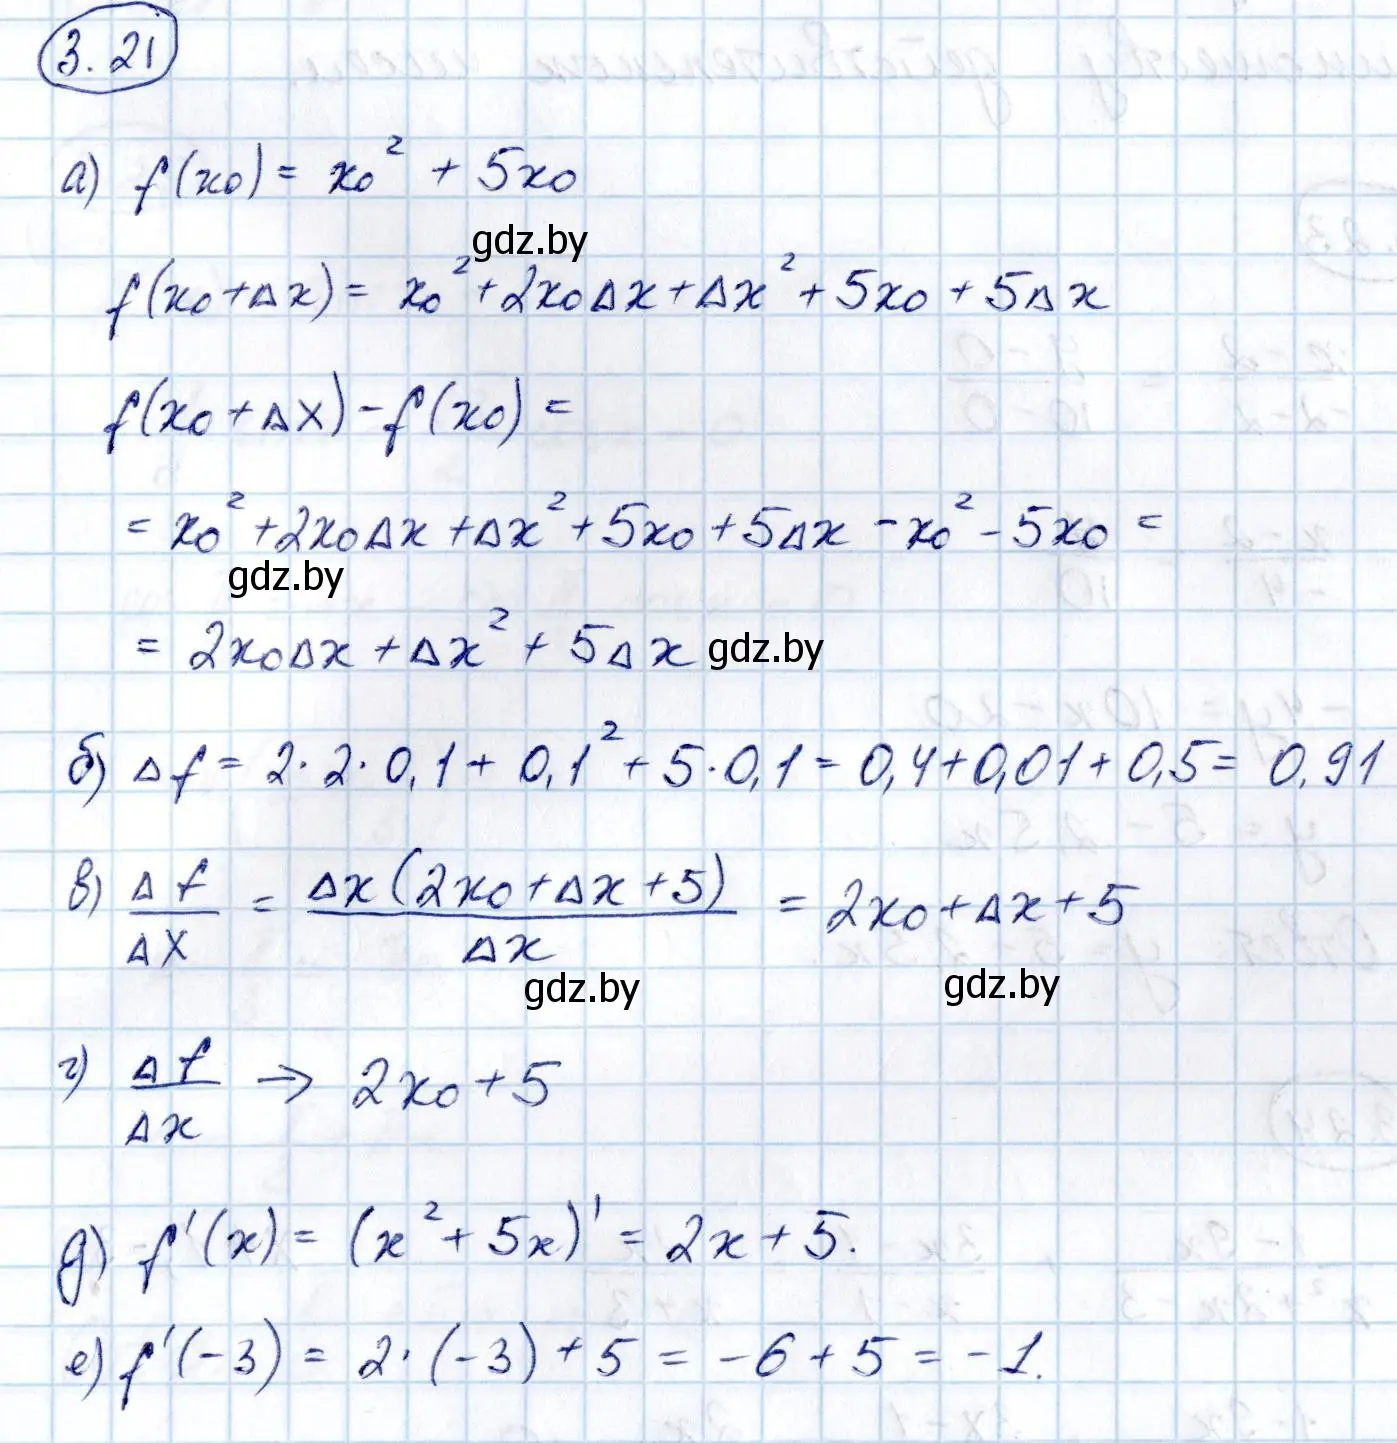 3.21
а) f(x₀) = x₀² + 5x₀
gdz.by
f(x₀+Δx) = x₀²+2x₀Δx+Δx²+5x₀+5Δx
f(x₀+Δx)-f(x₀) =
= x₀²+2x₀Δx+Δx²+5x₀+5Δx-x₀²-5x₀ =
gdz.by
= 2x₀Δx+Δx²+5Δx gdz.by
б) Δf = 2·2·0,1+0,1²+5·0,1=0,4+0,01+0,5= 0,91
в) Δf/Δx = Δx(2x₀+Δx+5)/Δx = 2x₀+Δx+5
gdz.by gdz.by
г) Δf/Δx → 2x₀+5
д) f'(x) = (x²+5x)' = 2x+5.
е) f'(-3) = 2·(-3)+5 = -6+5 = -1.